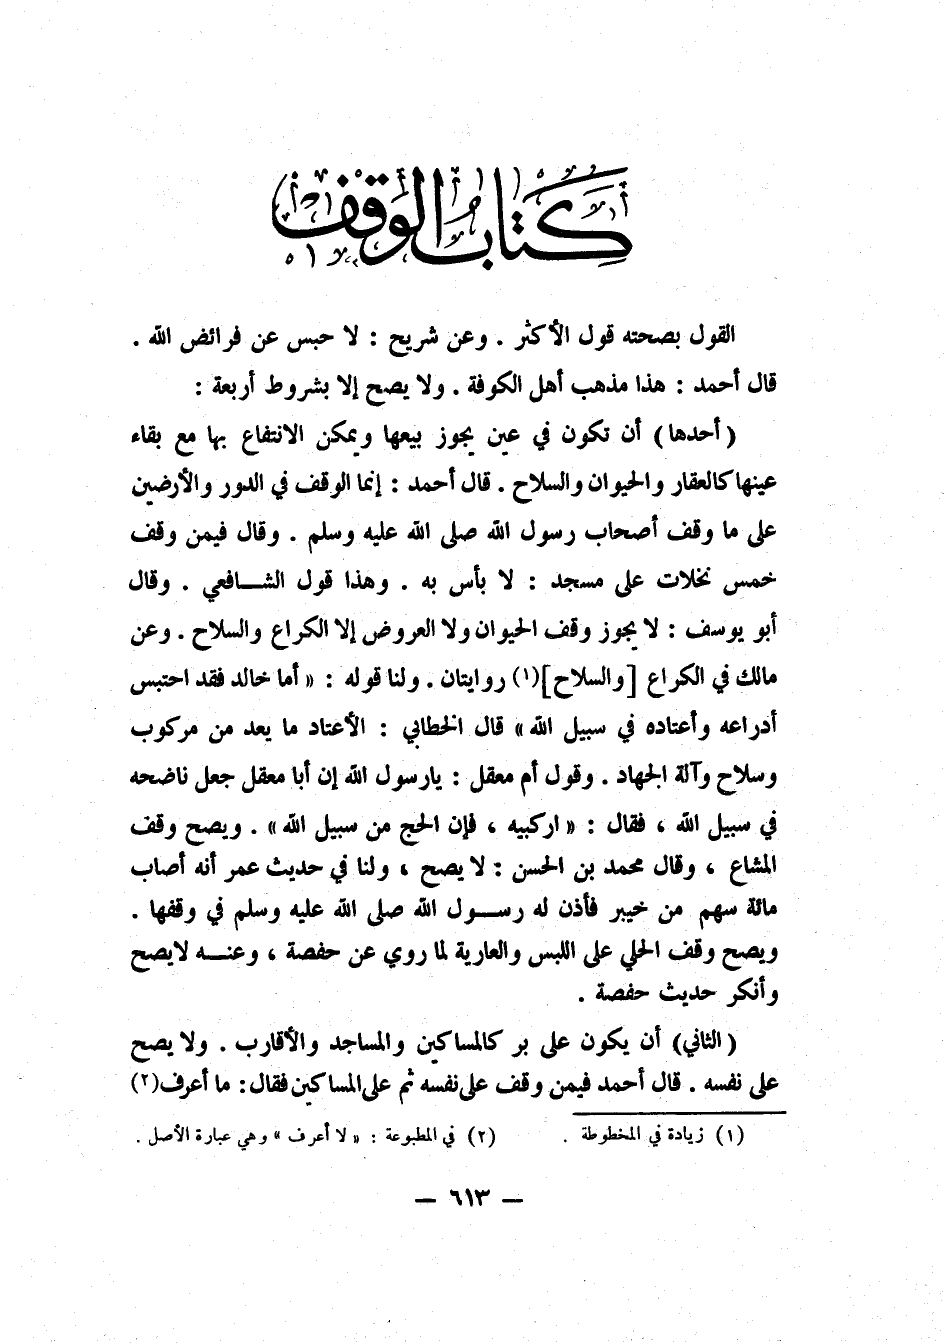 كتاب الوقف
القول بصحته قول الأكثر . وعن شريح : لا حبس عن فرائض الله .
قال أحمد : هذا مذهب أهل الكوفة . ولا يصح إلا بشروط أربعة :
( أحدها ) أن تكون في عين يجوز بيعها ويمكن الانتفاع بها مع بقاء
عينها كالعقار والحيوان والسلاح . قال أحمد : إنما الوقف في الدور والأرضين
على ما وقف أصحاب رسول الله صلى الله عليه وسلم . وقال فيمن وقف
خمس نخلات على مسجد : لا بأس به . وهذا قول الشافعي . وقال
أبو يوسف : لا يجوز وقف الحيوان ولا العروض إلا الكراع والسلاح . وعن
مالك في الكراع [والسلاح](١) روايتان . ولنا قوله : « أما خالد فقد احتبس
أدراعه وأعتاده في سبيل الله » قال الخطابي : الأعتاد ما يعد من مركوب
وسلاح وآلة الجهاد . وقول أم معقل : يارسول الله إن أبا معقل جعل ناضحه
في سبيل الله ، فقال : « اركبيه ، فإن الحج من سبيل الله » . ويصح وقف
المشاع ، وقال محمد بن الحسن : لا يصح ، ولنا في حديث عمر أنه أصاب
مائة سهم من خيبر فأذن له رسول الله صلى الله عليه وسلم في وقفها .
ويصح وقف الحلي على اللبس والعارية لما روي عن حفصة ، وعنه لايصح
وأنكر حديث حفصة .
( الثاني ) أن يكون على بر كالمساكين والمساجد والأقارب . ولا يصح
على نفسه . قال أحمد فيمن وقف على نفسه ثم على المساكين فقال : ما أعرف(٢)
(١) زيادة في المخطوطة . (٢) في المطبوعة : « لا أعرف » وهي عبارة الأصل .
— ٦١٣ —